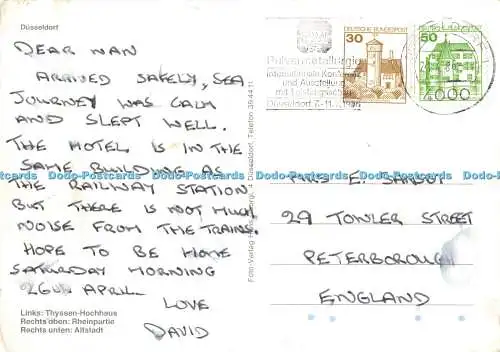 Düsseldorf
DEAR NAN
ARRIVED SAFELY, SEA
JOURNEY WAS CALM
AND SLEPT WELL.
THE HOTEL IS IN THE
SAME BUILDING AS
THE RAILWAY STATION
BUT THERE IS NOT MUCH
NOISE FROM THE TRAINS.
HOPE TO BE HOME
SATURDAY MORNING
26TH APRIL
LOVE
DAVID
Links: Thyssen-Hochhaus
Rechts oben: Rheinpartie
Rechts unten: Altstadt
Foto-Verlag
Düsseldorf, Telefon
30
DEUTSCHE BUNDESPOST
50
DEUTSCHE BUNDESPOST
Pulvermetallurgie
Internationale
und Ausstellung
Düsseldorf 7.-11.
4000
MRS E.
29 TOWLER STREET
PETERBOROUGH
ENGLAND
Dodo-Postcards Dodo-Postcards Dodo-Postcards Dodo-Postcards Dodo-Postcards